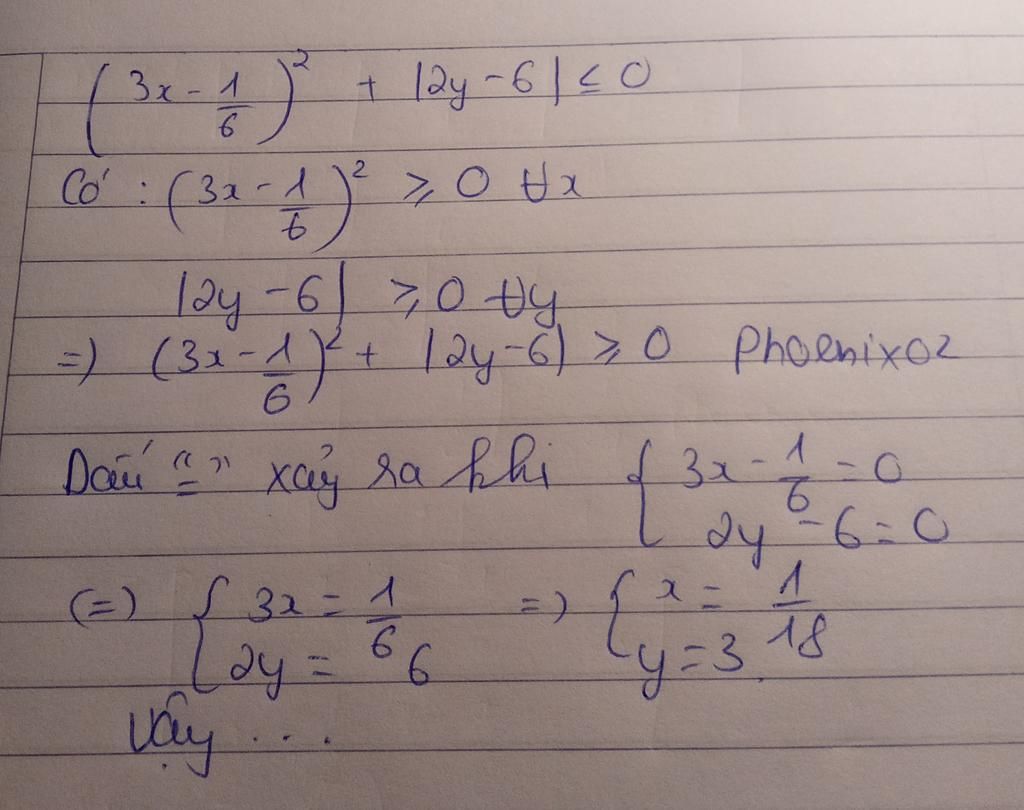 (3x - 1/6)² + |2y - 6| ≤ 0
Có : (3x - 1/6)² ≥ 0 ∀x
|2y - 6| ≥ 0 ∀y
=) (3x - 1/6)² + |2y - 6| ≥ 0 Phoenixoz
Dấu "=" xảy ra khi { 3x - 1/6 = 0
2y - 6 = 0
(=) { 3x = 1/6 =) { x = 1/18
2y = 6 y = 3
Vậy ...